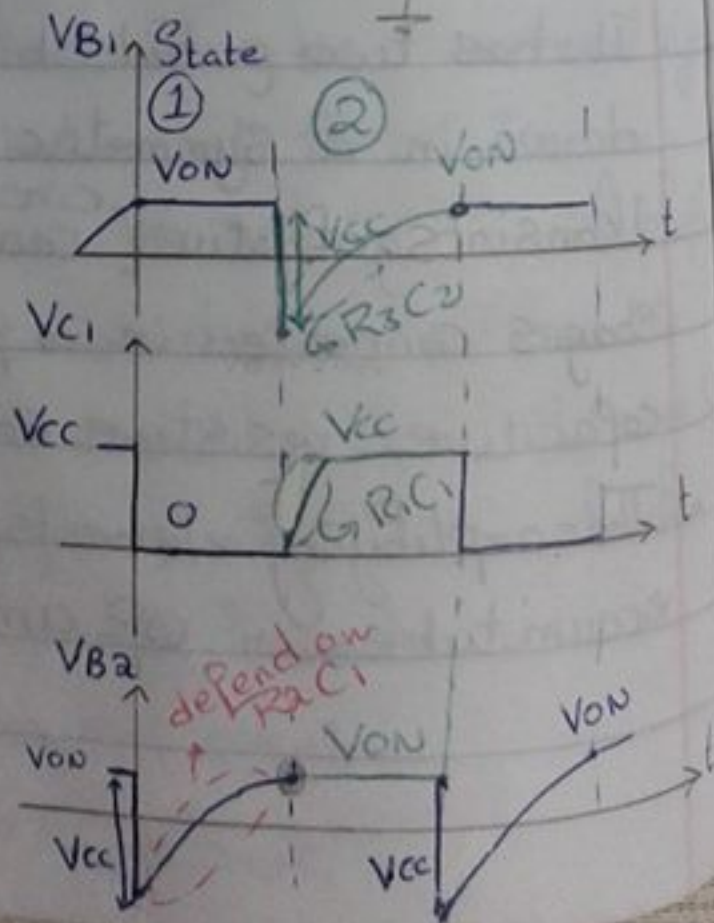 VB1 State
① ②
VON VON
VCC t
R3C2
VC1
VCC VCC
O R1C1 t
VB2
defend on
R2C1
VON VON VON
t
VCC VCC